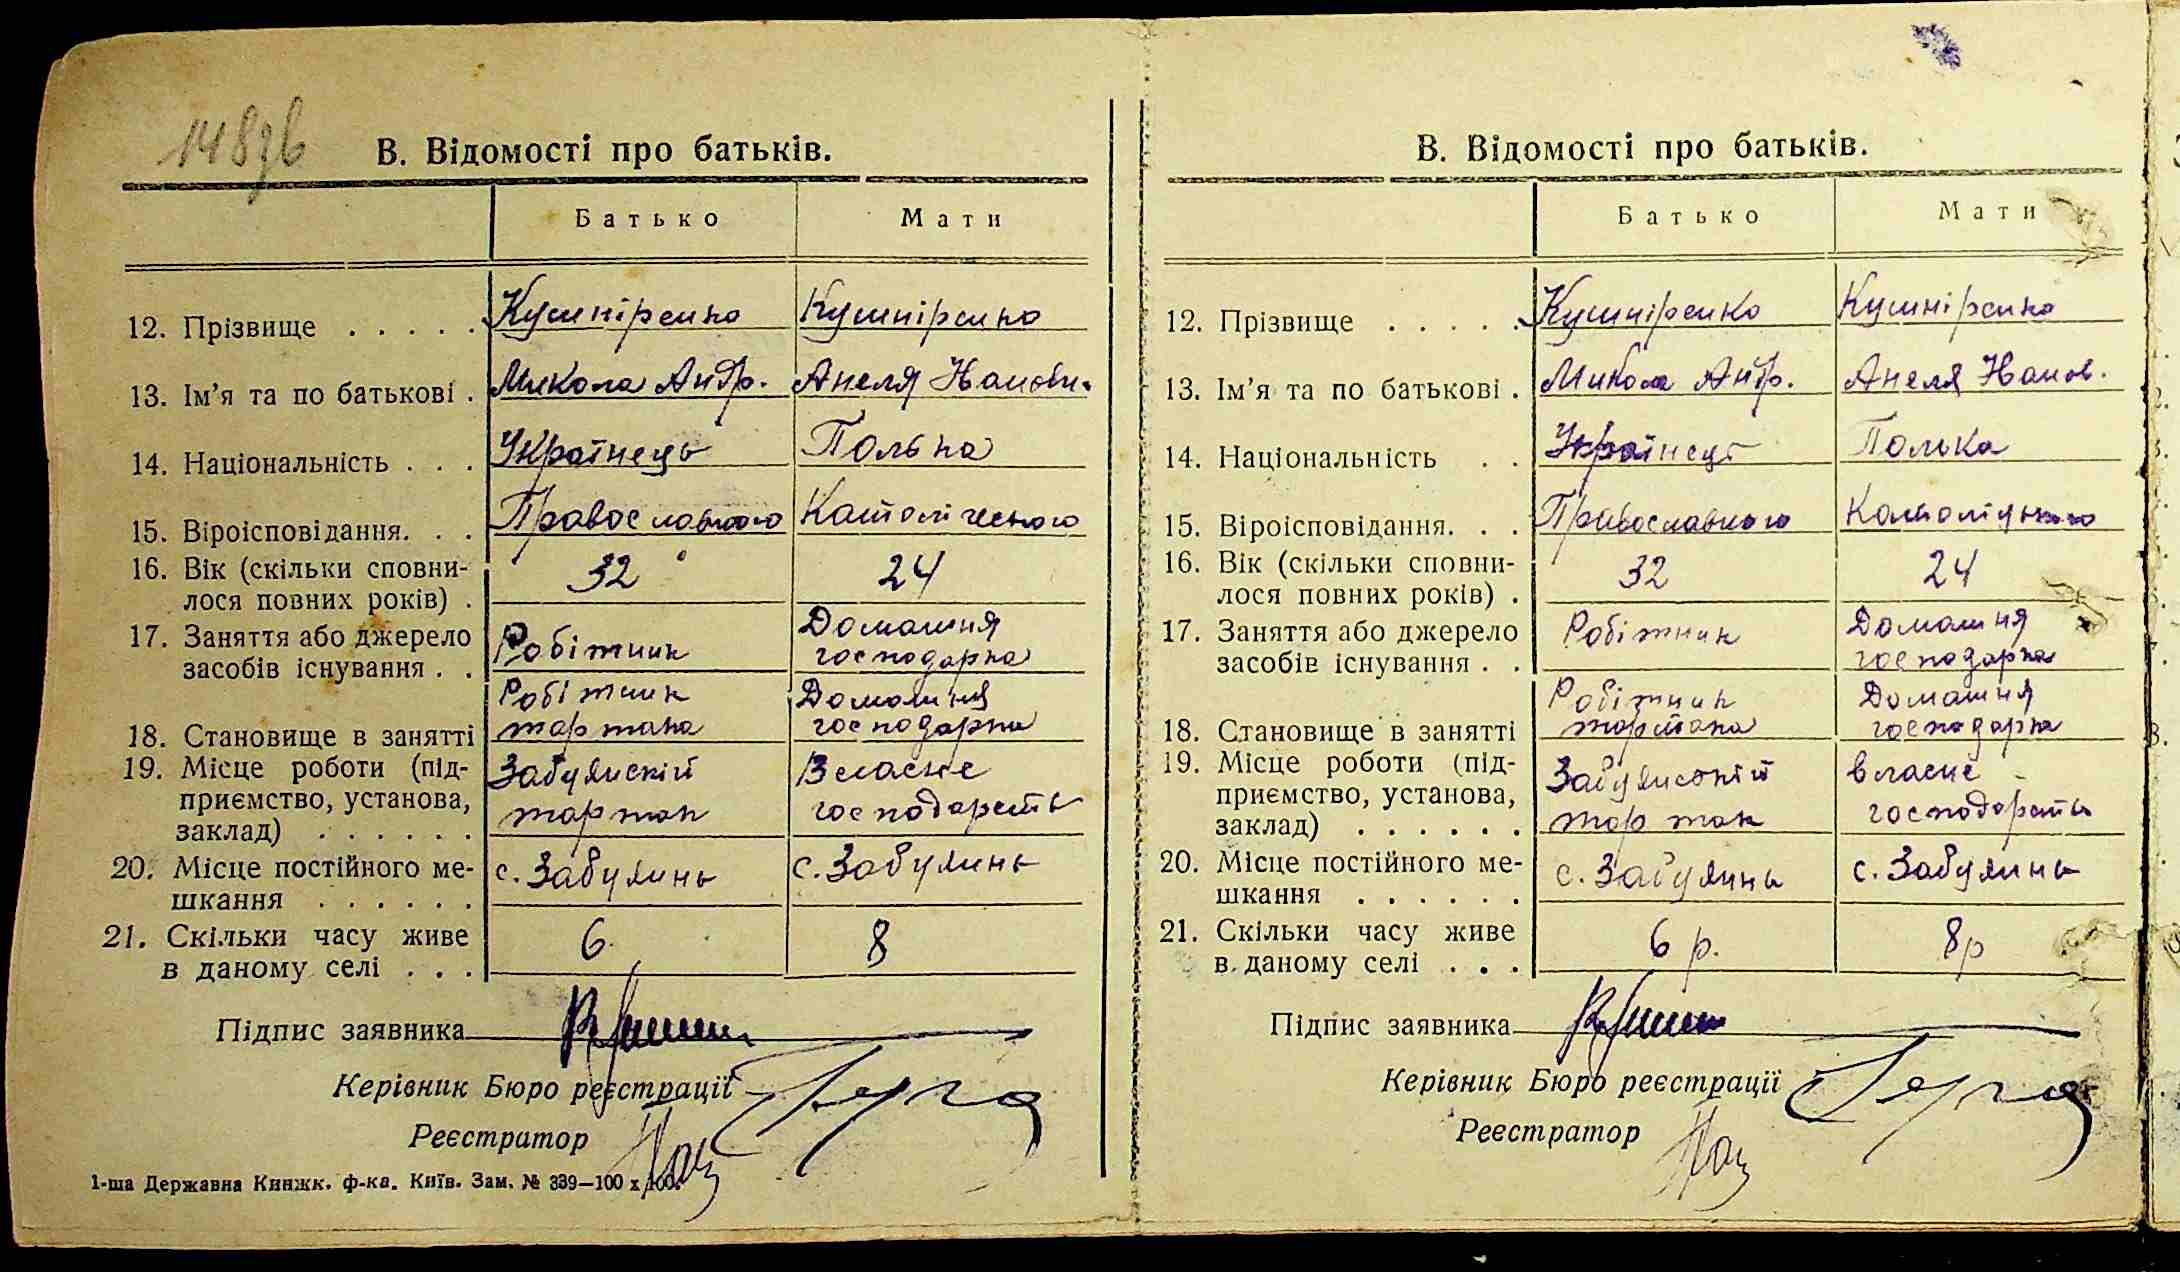 В. Відомості про батьків.
Батько Мати
12. Прізвище . . . . . Кушніренко Кушніренко
13. Ім’я та по батькові . Микола Андр. Анеля
14. Національність . . . Українець Полька
15. Віроісповідання. . . Православного Католіческого
16. Вік (скільки сповни-
лося повних років) . 32 24
17. Заняття або джерело Домашня
засобів існування . . Робітник господарка
Робітник Домашня
18. Становище в занятті тартака господарка
19. Місце роботи (під- Власне
приємство, установа,
заклад) . . . . . . тартак
20. Місце постійного ме- с. с.
шкання . . . . . .
21. Скільки часу живе 6 8
в даному селі . . .
Підпис заявника
Керівник Бюро реєстрації
Реєстратор
1-ша Державна Книжк. ф-ка. Київ. Зам. № 339—100 х 100.
В. Відомості про батьків.
Батько Мати
12. Прізвище . . . . . Кушніренко Кушніренко
13. Ім’я та по батькові . Микола Андр. Анеля
14. Національність . . Українець Полька
15. Віроісповідання. . . Православного
16. Вік (скільки сповни-
лося повних років) . 32 24
17. Заняття або джерело Домашня
засобів існування . . Робітник господарка
Робітник Домашня
18. Становище в занятті тартака господарка
19. Місце роботи (під- власне
приємство, установа,
заклад) . . . . . . тартак
20. Місце постійного ме- с. с.
шкання . . . . . .
21. Скільки часу живе 6 р. 8 р
в даному селі . . .
Підпис заявника
Керівник Бюро реєстрації
Реєстратор